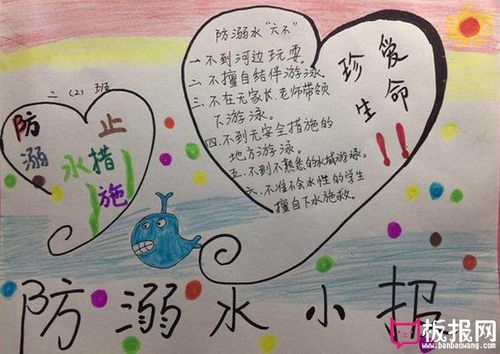 防溺水“六不”
一不到河边玩耍
二、不擅自结伴游泳
三、不在无家长、老师带领
下游泳。
四、不到无安全措施的
地方游泳。
五、不到不熟悉的水域游泳。
六、不准不会水性的学生
擅自下水施救。
珍爱
生命
!!
二（2）班
防 止
溺水措
施
防溺水小招
板报网
www.banbaowang.com